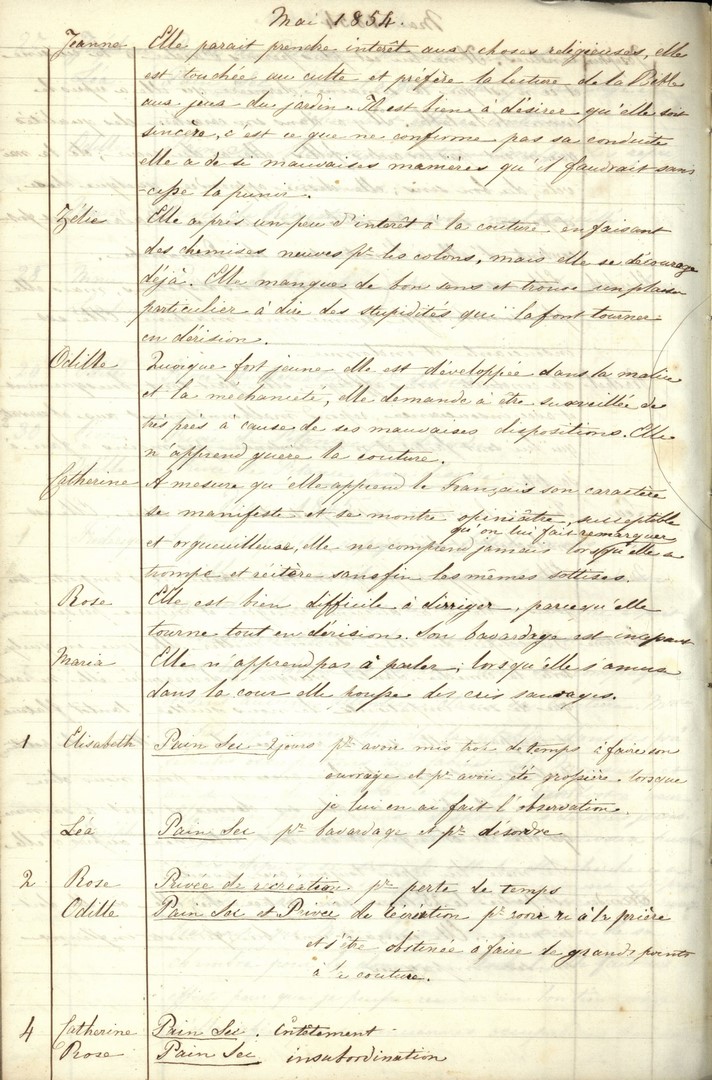 Mai 1854.
Jeanne Elle parait prendre intérêt aux choses religieuses, elle
est touchée au culte et préfère la lecture de la Bible
aux jeux du jardin. Il est bien à désirer qu'elle soit
sincère, c'est ce que ne confirme pas sa conduite
elle a de si mauvaises manières qu'il faudrait sans
-cesse la punir.
Zélie Elle a pris un peu d'intérêt à la couture en faisant
des chemises neuves pr. les colons, mais elle se décourage
déjà. Elle manque de bon sens et trouve un plaisir
particulier à dire des stupidités qui la font tourner
en dérision.
Odille Quoique fort jeune elle est développée dans la malice
et la méchanceté, elle demande à être surveillée de
très près à cause de ses mauvaises dispositions. Elle
n'apprend guère la couture.
Catherine A mesure qu'elle apprend le Français son caractère
se manifeste et se montre opiniâtre, susceptible
qu'on lui fait remarquer
et orgueilleuse, elle ne comprend jamais lorsqu'elle a
trompé et réitère sans fin les mêmes sottises.
Rose Elle est bien difficile à dirriger, parcequ'elle
tourne tout en dérision. Son bavardage est
Maria Elle n'apprend pas à parler; lorsqu'elle s'amuse
dans la cour elle pousse des cris sauvages.
1 Elisabeth Pain Sec 2 jours pr. avoir mis trop de temps à faire son
ouvrage et pr. avoir été grossière lorsque
je lui en ai fait l'observation.
Léa Pain Sec pr. bavardage et pr. désordre
2 Rose Privée de récréation pr. perte de temps
Odille Pain Sec et Privée de récréation pr. avoir ri à la prière
et s'être obstinée à faire de grands points
à la couture.
4 Catherine Pain Sec. Entêtement
Rose Pain Sec insubordination